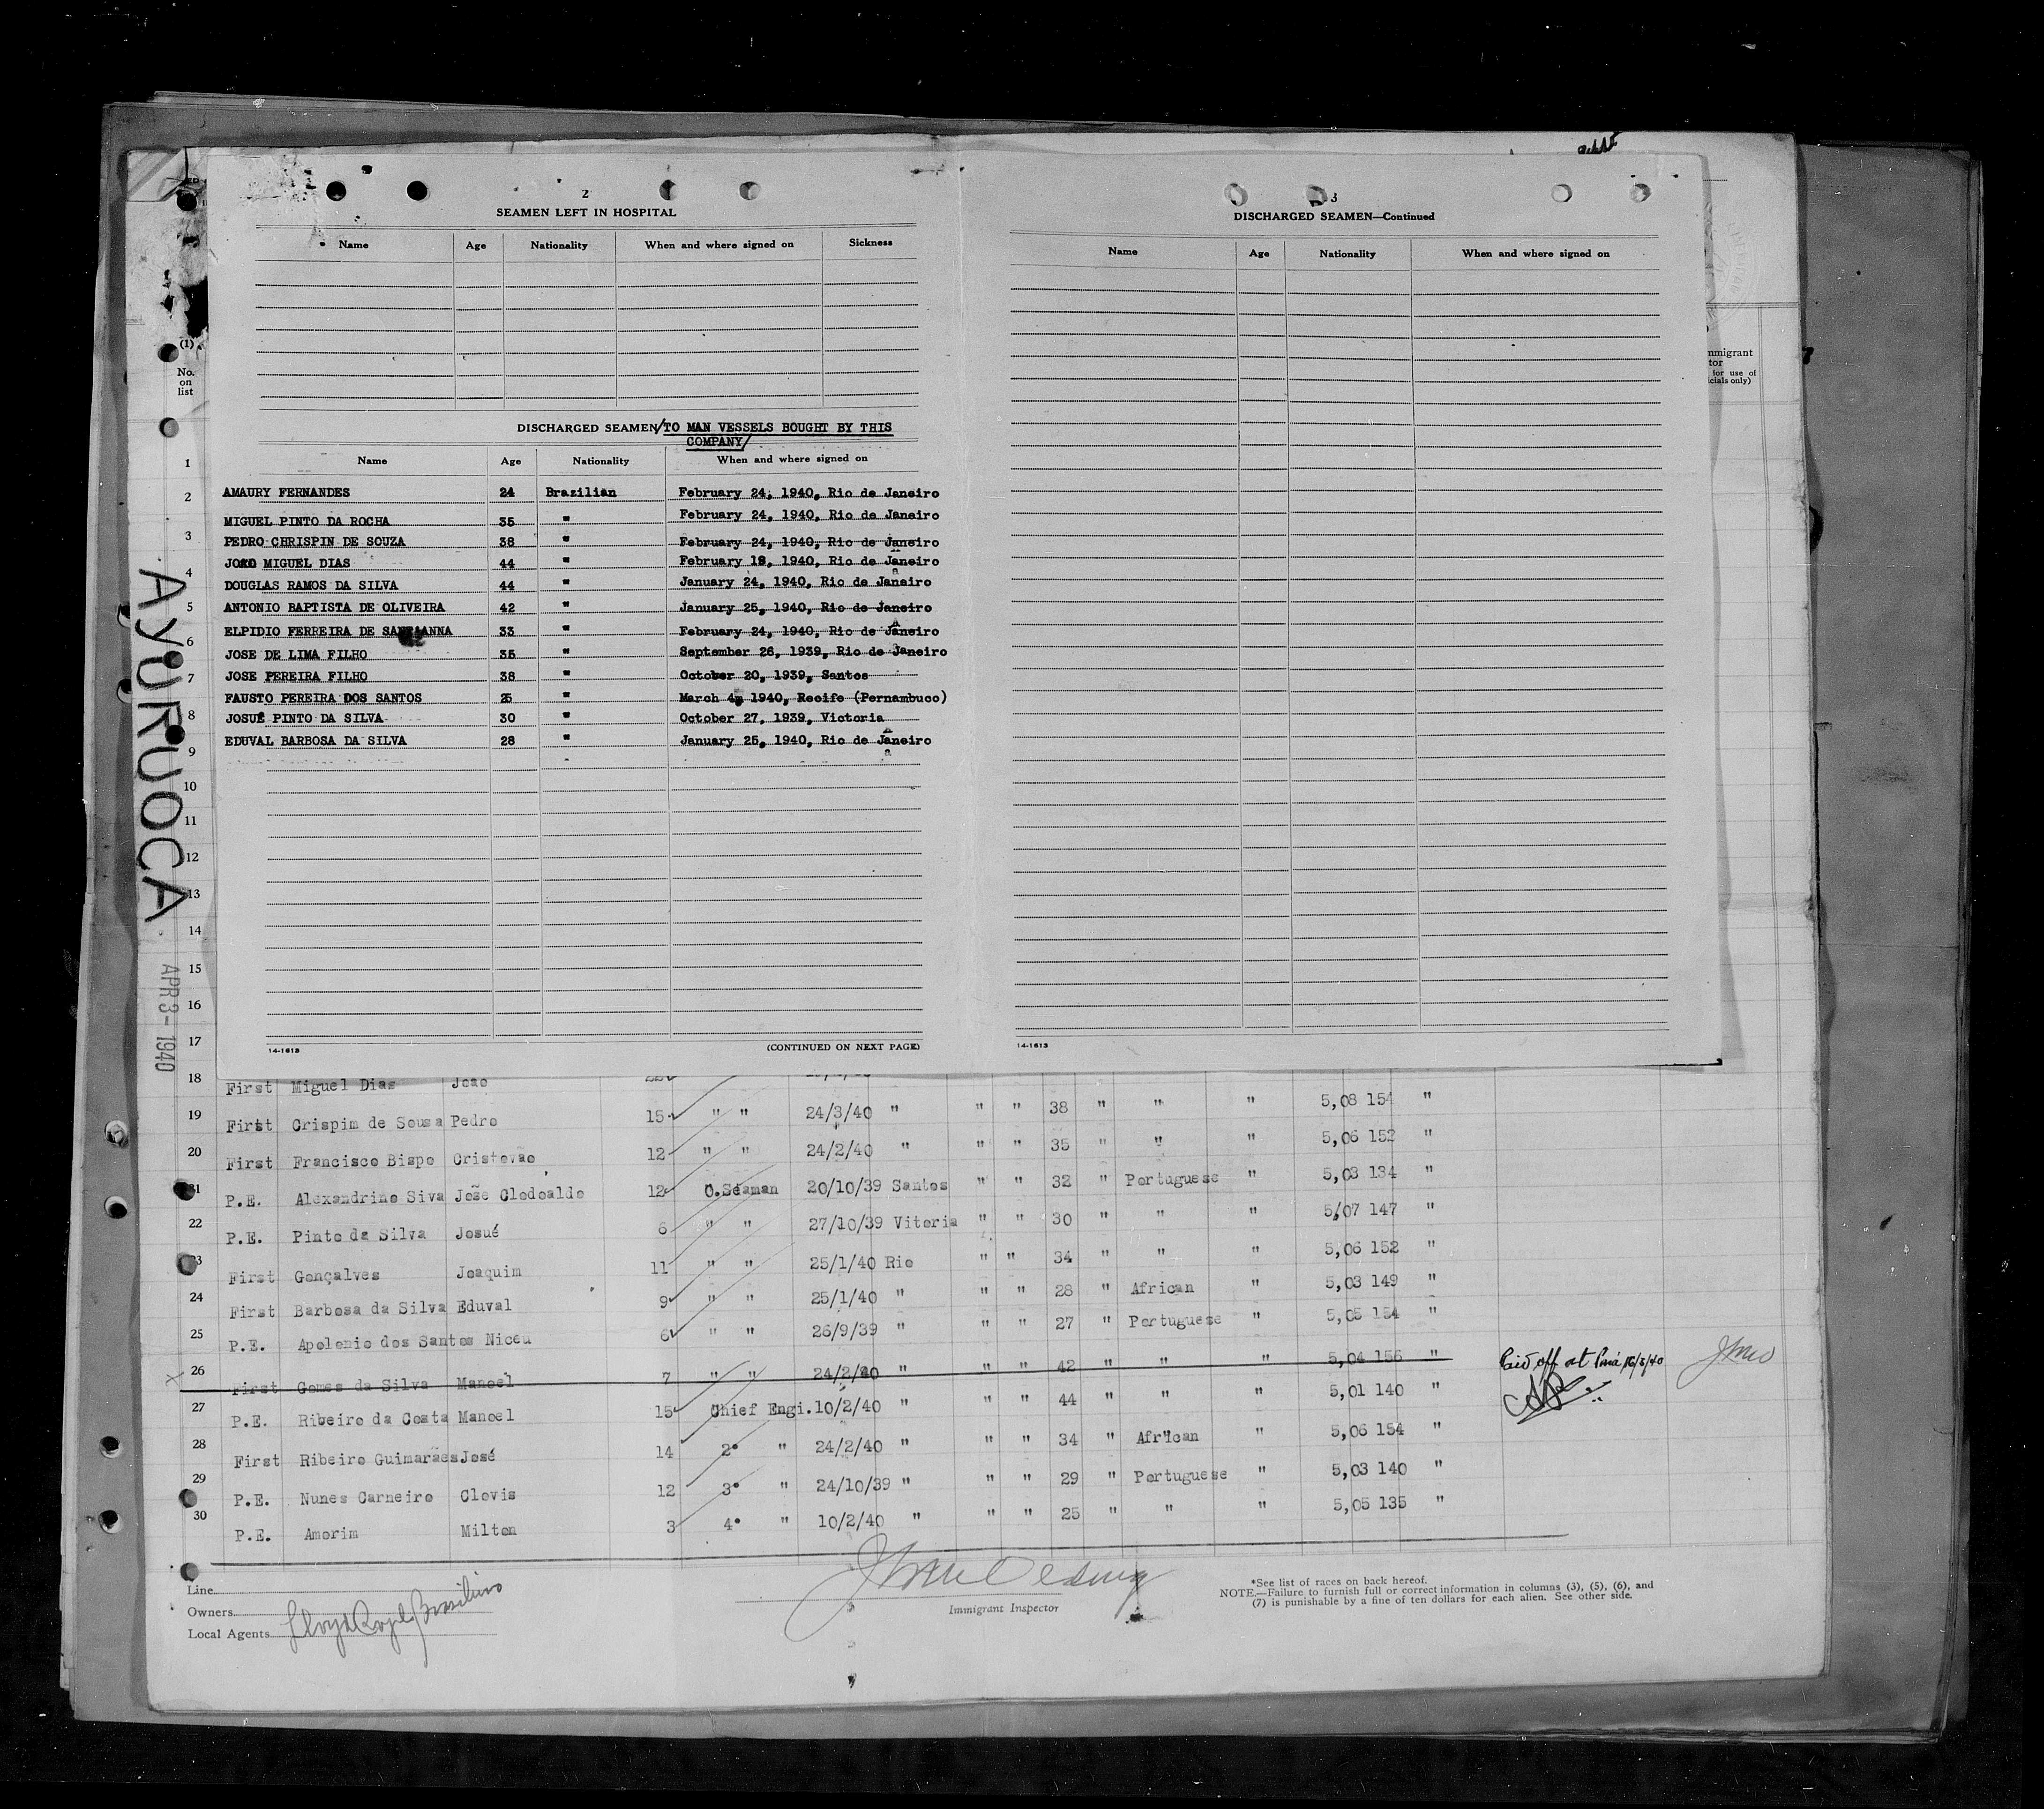 2
SEAMEN LEFT IN HOSPITAL
Name Age Nationality When and where signed on Sickness
DISCHARGED SEAMEN/TO MAN VESSELS BOUGHT BY THIS
COMPANY/
Name Age Nationality When and where signed on
AMAURY FERNANDES 24 Brazilian February 24, 1940, Rio de Janeiro
MIGUEL PINTO DA ROCHA 35 " February 24, 1940, Rio de Janeiro
PEDRO CHRISPIN DE SOUZA 38 " February 24, 1940, Rio de Janeiro
JOAO MIGUEL DIAS 44 " February 19, 1940, Rio de Janeiro
DOUGLAS RAMOS DA SILVA 44 " January 24, 1940, Rio de Janeiro
ANTONIO BAPTISTA DE OLIVEIRA 42 " January 25, 1940, Rio de Janeiro
ELPIDIO FERREIRA DE SANTANNA 33 " February 24, 1940, Rio de Janeiro
JOSE DE LIMA FILHO 35 " September 26, 1939, Rio de Janeiro
JOSE PEREIRA FILHO 38 " October 20, 1939, Santos
FAUSTO PEREIRA DOS SANTOS 25 " March 4, 1940, Recife (Pernambuco)
JOSUÉ PINTO DA SILVA 30 " October 27, 1939, Victoria
EDUVAL BARBOSA DA SILVA 28 " January 25, 1940, Rio de Janeiro
14-1613 (CONTINUED ON NEXT PAGE)
3
DISCHARGED SEAMEN—Continued
Name Age Nationality When and where signed on
14-1613
(1)
No.
on
list
mmigrant
tor
for use of
cials only)
1
2
3
4
5
6
7
8
9
10
11
12
13
14
15
16
17
AYURUOCA
APR 3 - 1940
18 First Miguel Dias Joao
19 First Crispim de Sousa Pedro 15 " " 24/3/40 " " " 38 " " " 5,08 154 "
20 First Francisco Bispo Cristovao 12 " " 24/2/40 " " " 35 " " " 5,06 152 "
21 P.E. Alexandrino Siva José Clodoaldo 12 O.Seaman 20/10/39 Santos " " 32 " Portuguese " 5,03 134 "
22 P.E. Pinto da Silva Josué 6 " " 27/10/39 Vitoria " " 30 " " " 5,07 147 "
23 First Gonçalves Joaquim 11 " " 25/1/40 Rio " " 34 " " " 5,06 152 "
24 First Barbosa da Silva Eduval 9 " " 25/1/40 " " " 28 " African " 5,03 149 "
25 P.E. Apolonio dos Santos Niceu 6 " " 26/9/39 " " " 27 " Portuguese " 5,05 154 "
26 First Gomes da Silva Manoel 7 " " 24/2/40 " " " 42 " " " 5,04 156 " Paid off at Pará 16/3/40
27 P.E. Ribeiro da Costa Manoel 15 Chief Engi. 10/2/40 " " " 44 " " " 5,01 140 "
28 First Ribeiro Guimarães José 14 2º " 24/2/40 " " " 34 " African " 5,06 154 "
29 P.E. Nunes Carneiro Clovis 12 3º " 24/10/39 " " " 29 " Portuguese " 5,03 140 "
30 P.E. Amorim Milton 3 4º " 10/2/40 " " " 25 " " " 5,05 135 "
Line
Owners
Local Agents Lloyd Brasileiro
Immigrant Inspector
*See list of races on back hereof.
NOTE.—Failure to furnish full or correct information in columns (3), (5), (6), and
(7) is punishable by a fine of ten dollars for each alien. See other side.